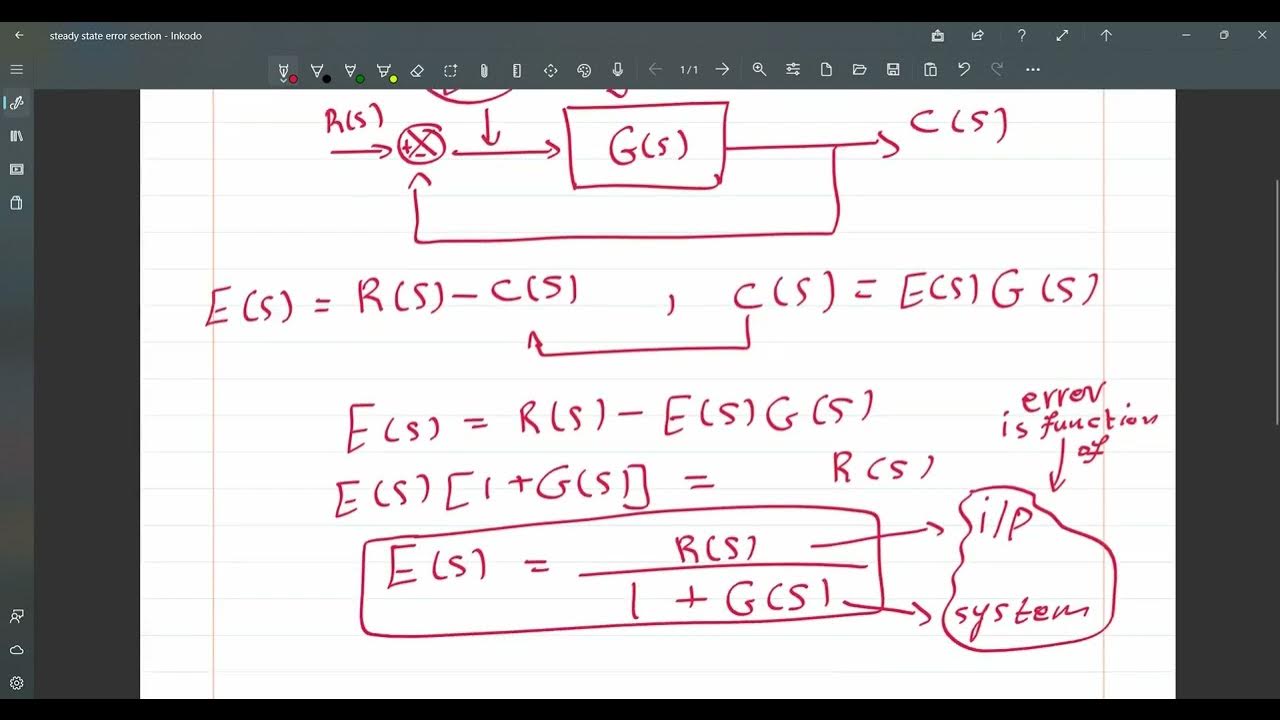 steady state error section - Inkodo
1/1
R(s)
+
-
G(s)
C(s)
E(s) = R(s) - C(s) , C(s) = E(s) G(s)
E(s) = R(s) - E(s) G(s)
error
is function
of
E(s) [1 + G(s)] = R(s)
E(s) = R(s)
1 + G(s)
i/p
system